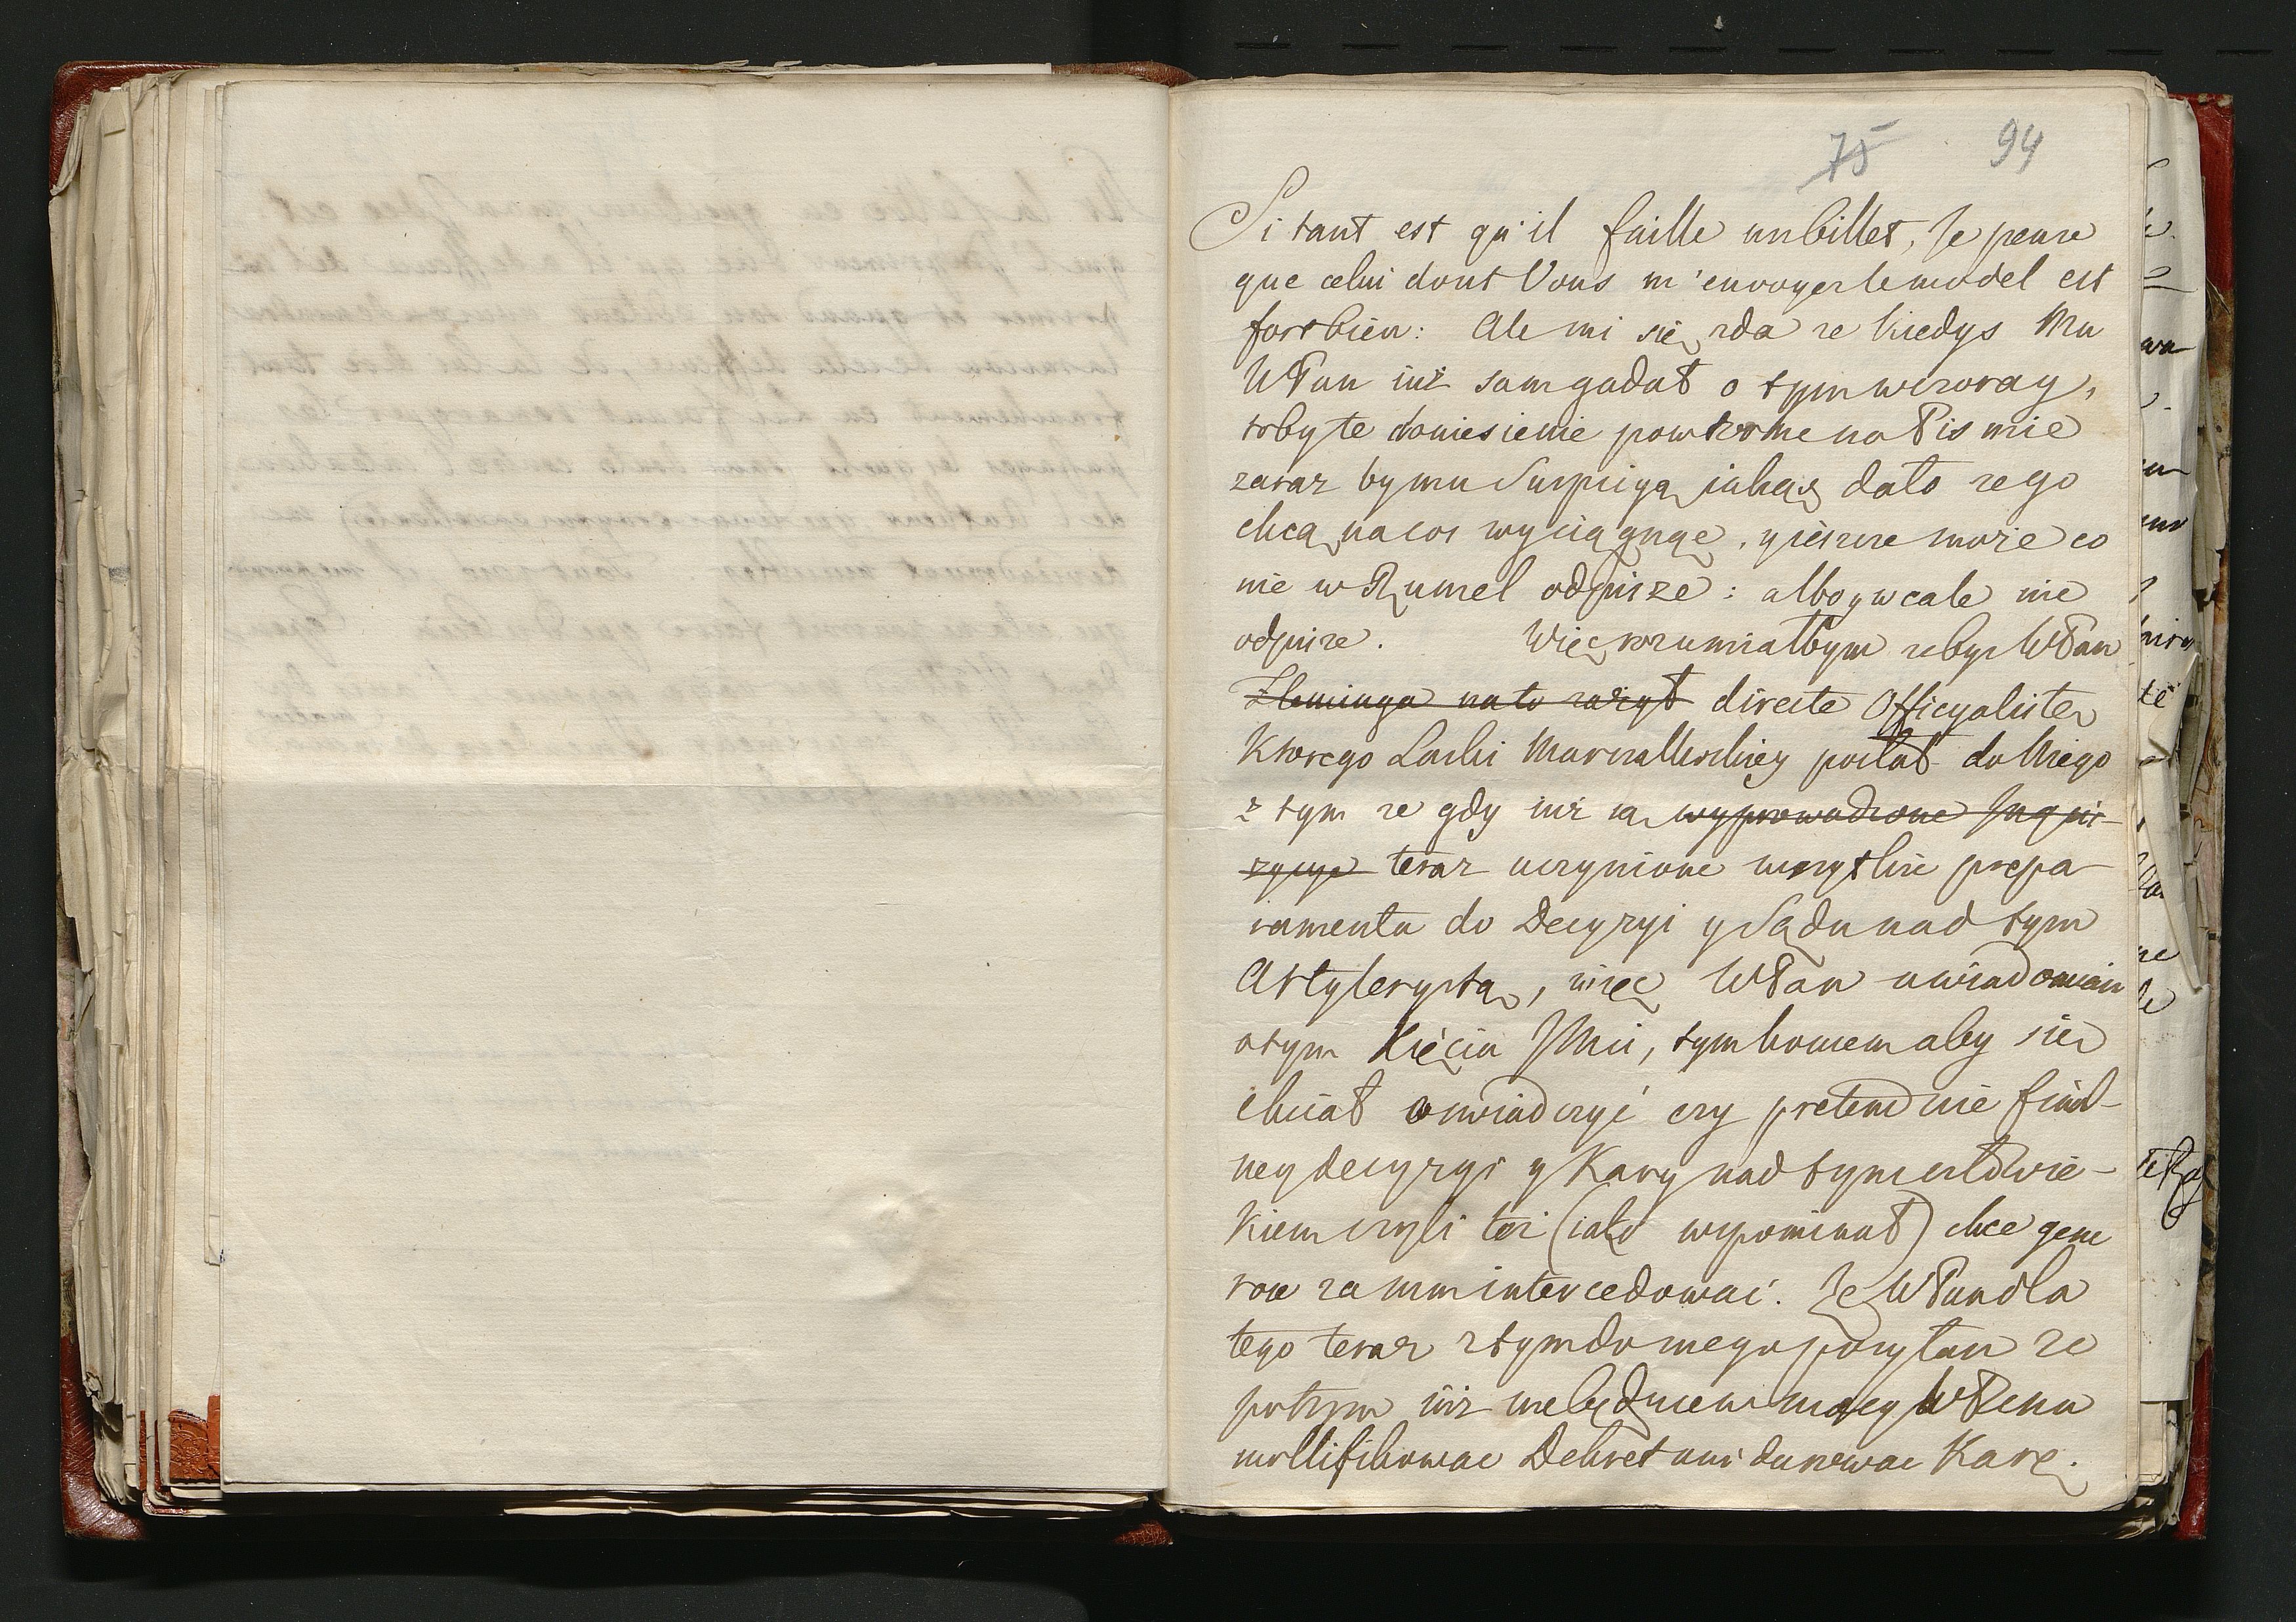 75 94
Si tant est qu'il faille un billet, Je pense
que celui dont Vous m'envoyez le model est
fort bien: Ale mi się zda ze kiedys Mu
WPan iuż sam gadał o tym wczoray,
tobyte doniesienie powtorne na Pismie
zaraz by mu Suspicyą iakąś dało zego
chcą na cos wyciągnąć, y ieszcze może co
nie w Rymel odpisze: albo y wcale nie
odpisze. Więc rozumiałbym zebys WPan
Fleminga na to zażył directe Officyalistę
Ktorego Laski Marszałkowskiey posłał do Niego
z tym ze gdy iuż są wyprowadzone Inqui-
zycye teraz uczynione wszystkie prepa-
ramenta do Decyzyi y Sądu nad tym
Artylerystą, więc WPan uwiadomiasz
o tym Xięcia JMci, tym koncem aby się
chciał oswiadczyć czy pretenduie final-
ney decyzyi y Kary nad tym człowie-
kiem czyli też (iako wspominał) chce gene
rose za nim intercedować. Ze WPan dla
tego teraz z tym do niego posyłasz ze
potym iuż nie będzie w mocy WPana
mollifikowac Dekret ani darowac Karę.